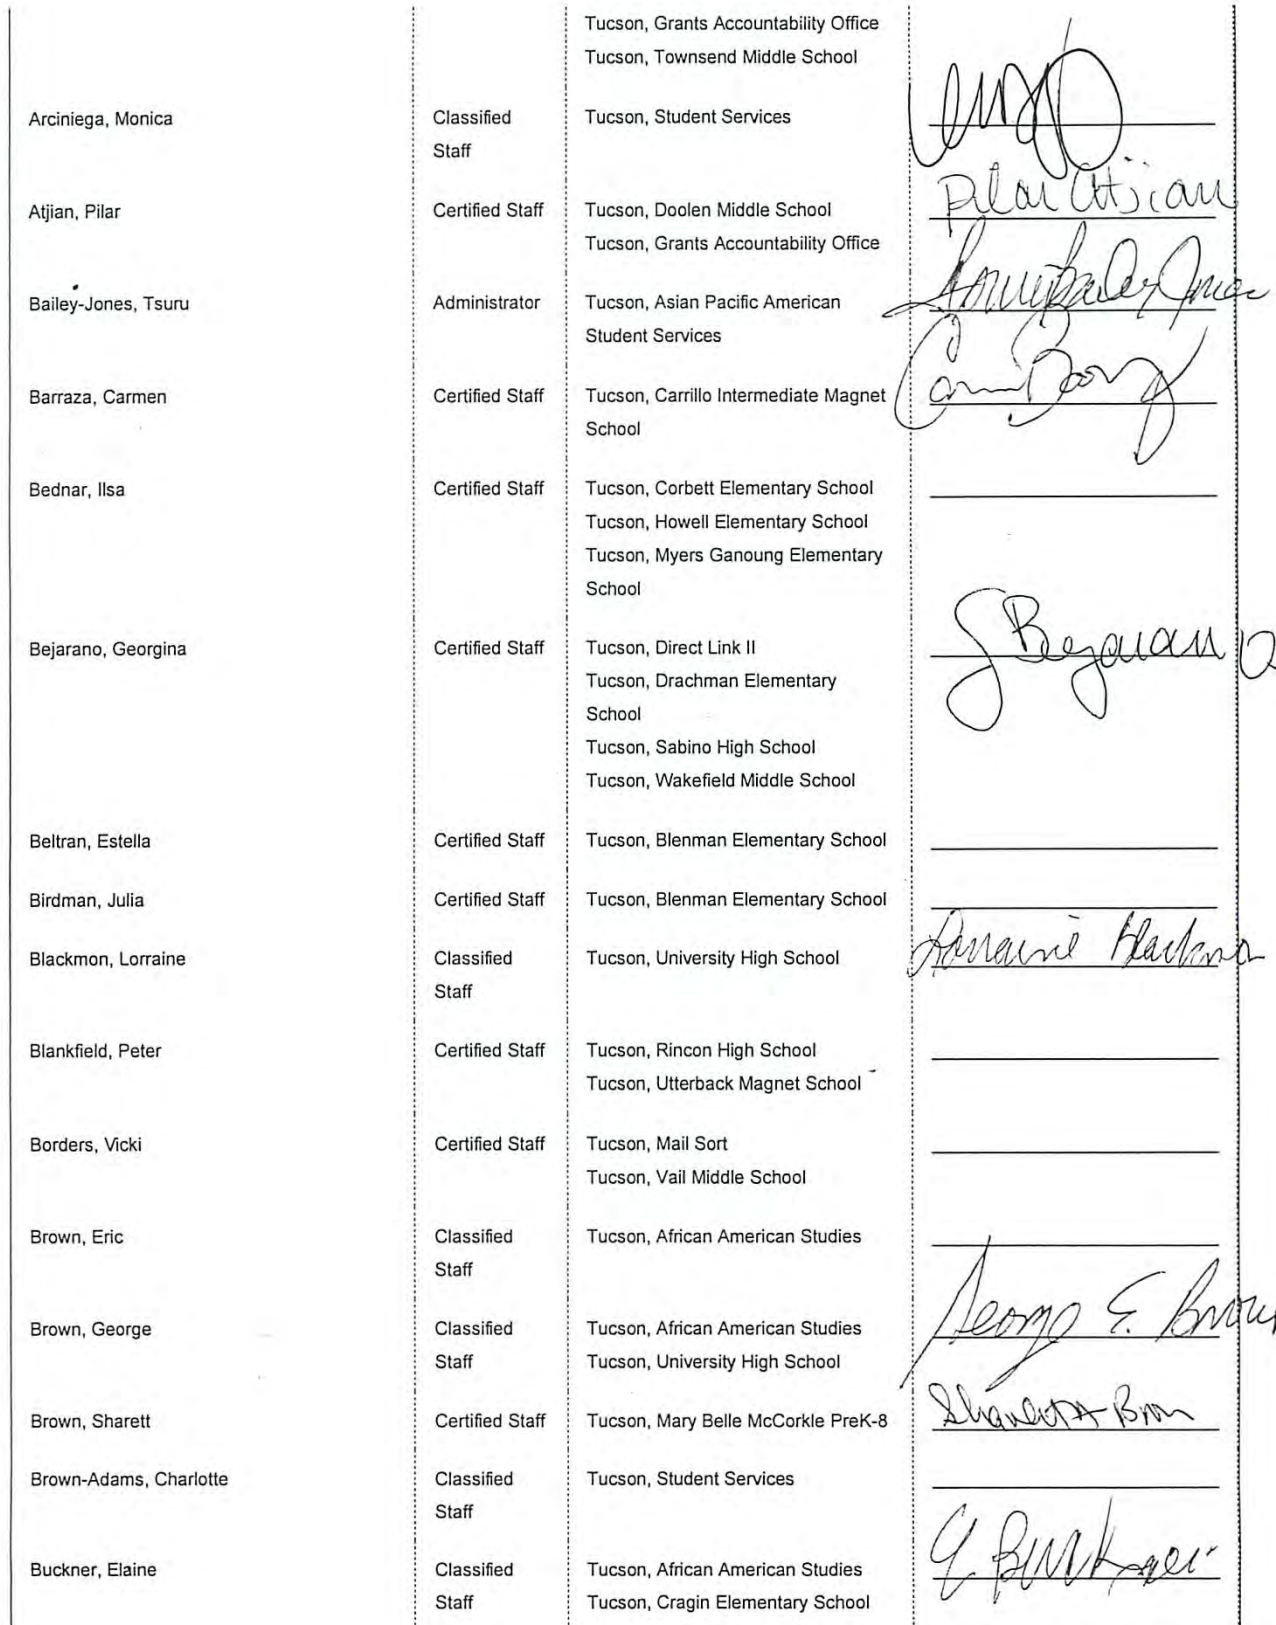 Tucson, Grants Accountability Office
Tucson, Townsend Middle School
Arciniega, Monica Classified Tucson, Student Services
Staff
Atjian, Pilar Certified Staff Tucson, Doolen Middle School Pilar Atjian
Tucson, Grants Accountability Office
Bailey-Jones, Tsuru Administrator Tucson, Asian Pacific American
Student Services
Barraza, Carmen Certified Staff Tucson, Carrillo Intermediate Magnet
School
Bednar, Ilsa Certified Staff Tucson, Corbett Elementary School
Tucson, Howell Elementary School
Tucson, Myers Ganoung Elementary
School
Bejarano, Georgina Certified Staff Tucson, Direct Link II G Bejarano
Tucson, Drachman Elementary
School
Tucson, Sabino High School
Tucson, Wakefield Middle School
Beltran, Estella Certified Staff Tucson, Blenman Elementary School
Birdman, Julia Certified Staff Tucson, Blenman Elementary School
Blackmon, Lorraine Classified Tucson, University High School Lorraine Blackmon
Staff
Blankfield, Peter Certified Staff Tucson, Rincon High School
Tucson, Utterback Magnet School
Borders, Vicki Certified Staff Tucson, Mail Sort
Tucson, Vail Middle School
Brown, Eric Classified Tucson, African American Studies
Staff
Brown, George Classified Tucson, African American Studies George E. Brown
Staff Tucson, University High School
Brown, Sharett Certified Staff Tucson, Mary Belle McCorkle PreK-8
Brown-Adams, Charlotte Classified Tucson, Student Services
Staff
Buckner, Elaine Classified Tucson, African American Studies E Buckner
Staff Tucson, Cragin Elementary School